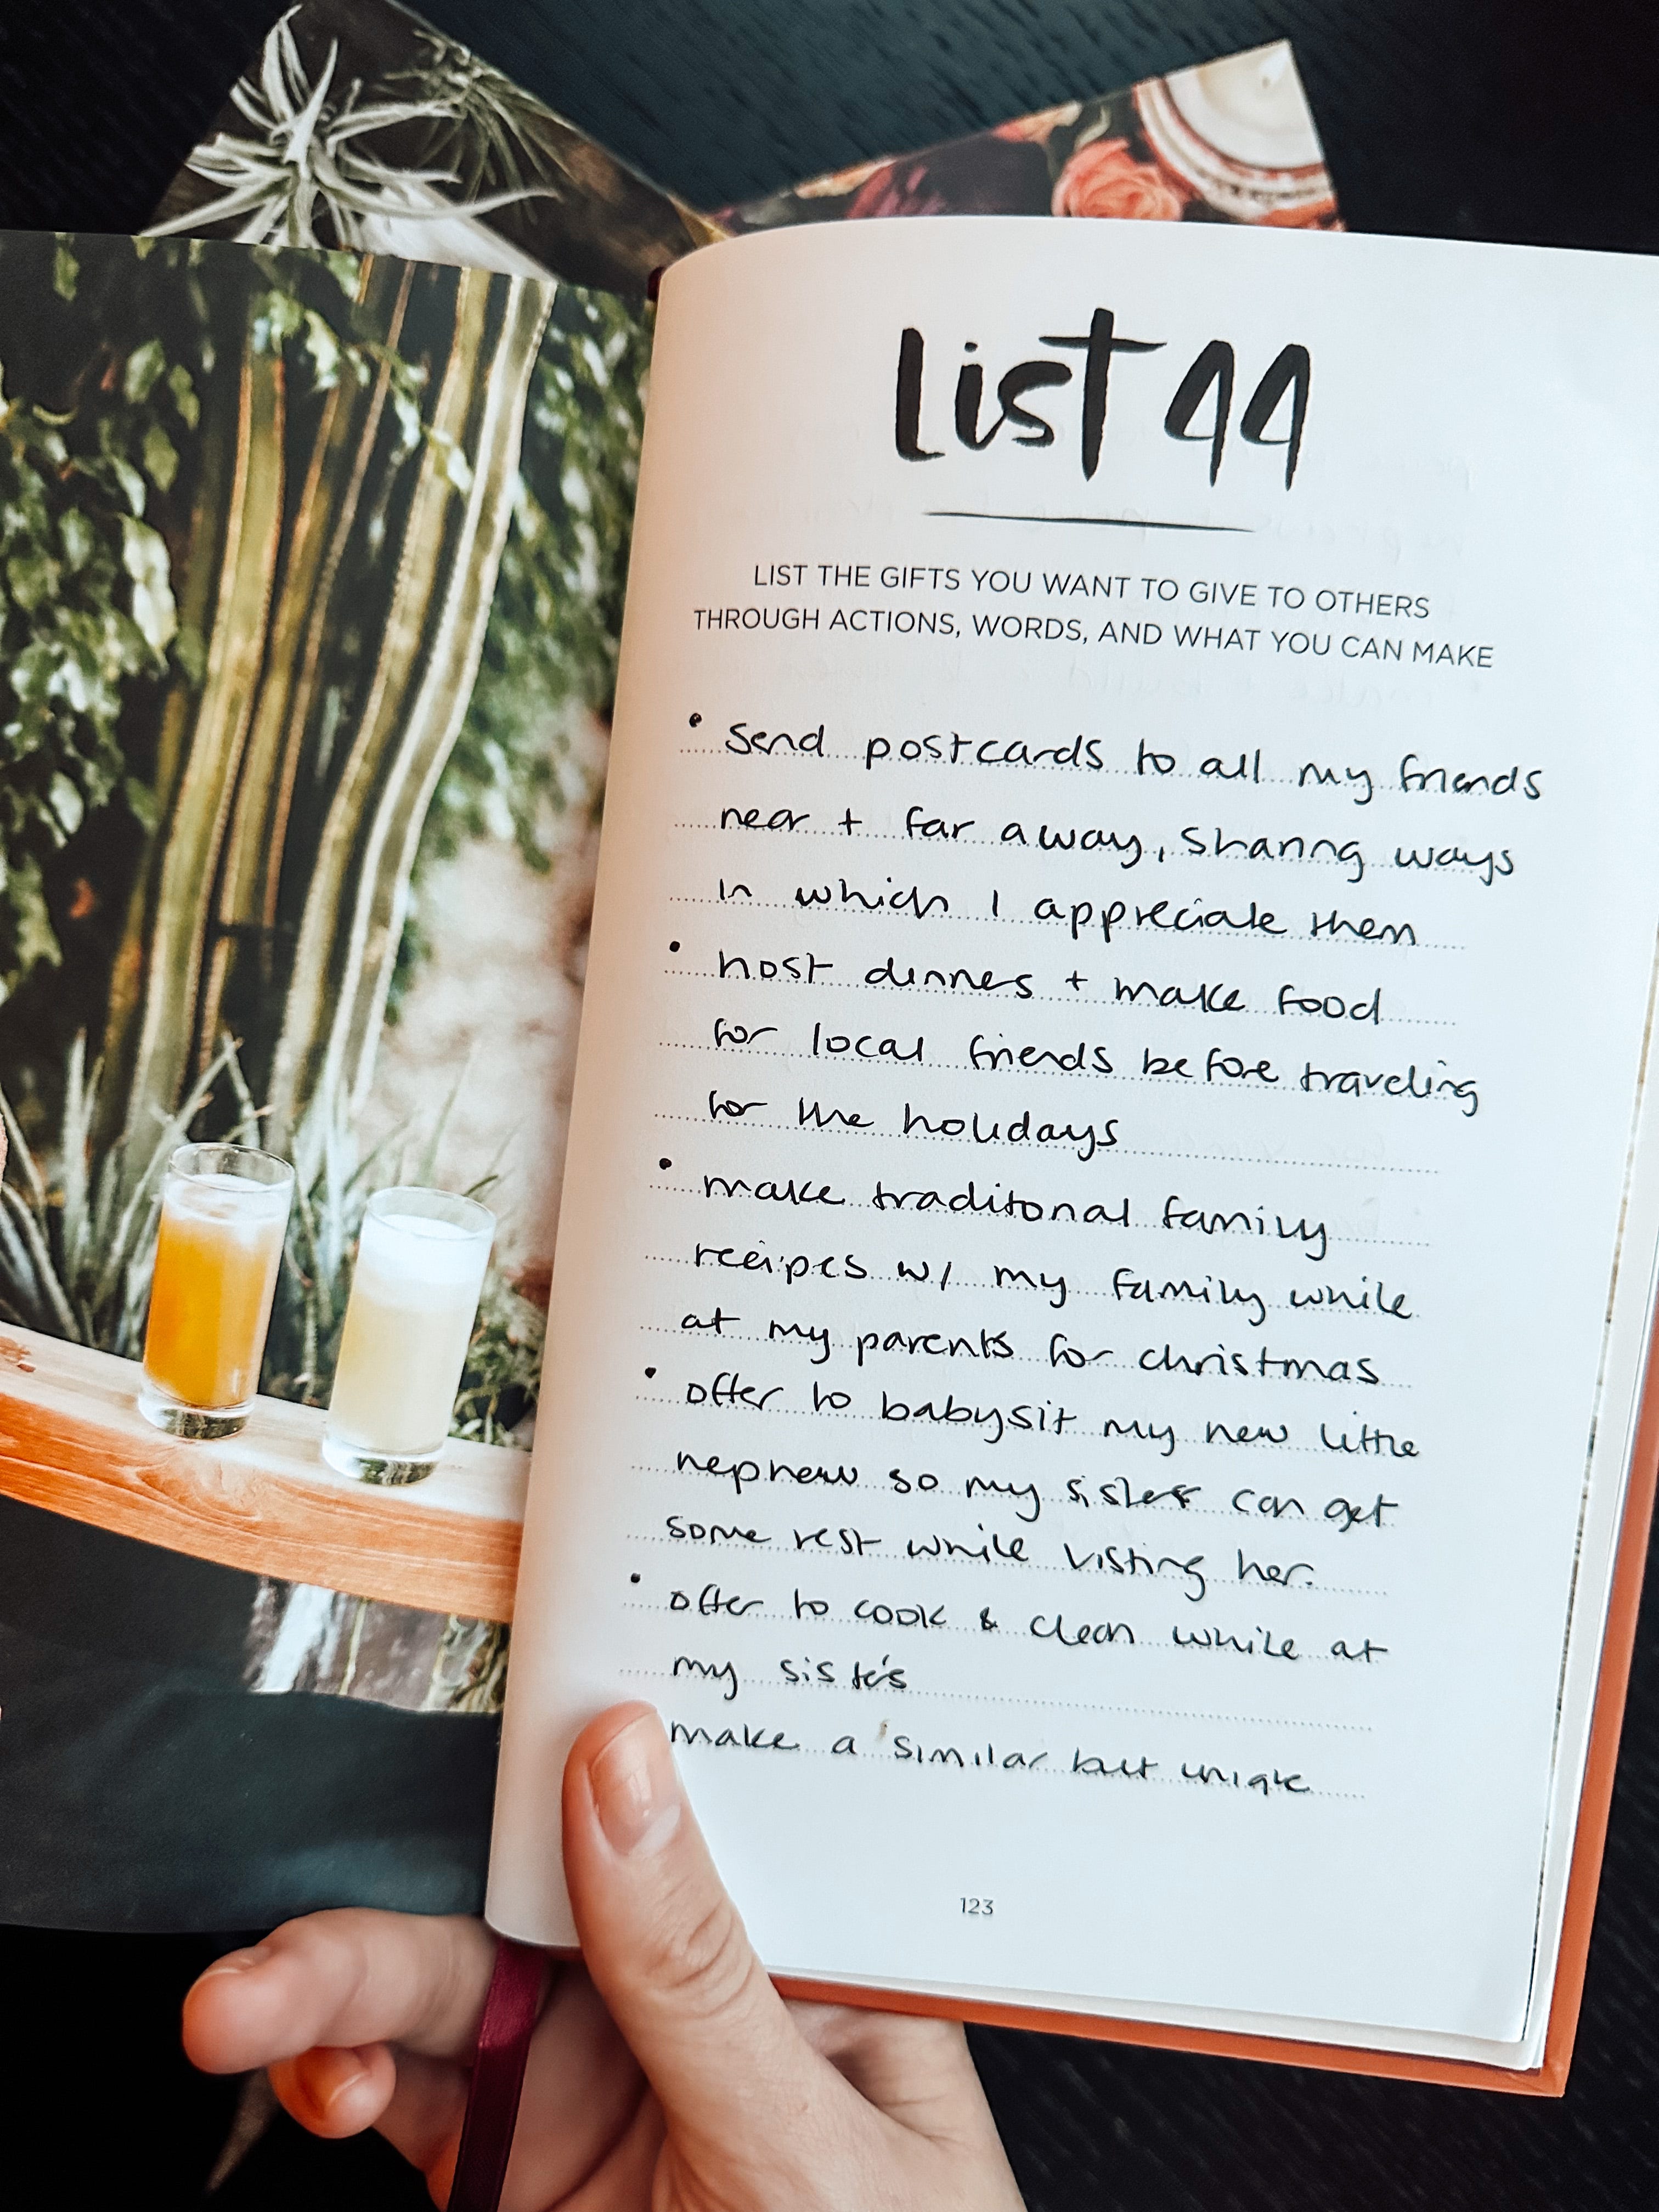 List 44
LIST THE GIFTS YOU WANT TO GIVE TO OTHERS
THROUGH ACTIONS, WORDS, AND WHAT YOU CAN MAKE
• send postcards to all my friends
near + far away, sharing ways
in which I appreciate them
• host dinners + make food
for local friends before traveling
for the holidays
• make traditonal family
recipes w/ my family while
at my parents for christmas
• offer to babysit my new little
nephew so my sister can get
some rest while visting her.
• offer to cook & clean while at
my sister's
make a similar but unique
123